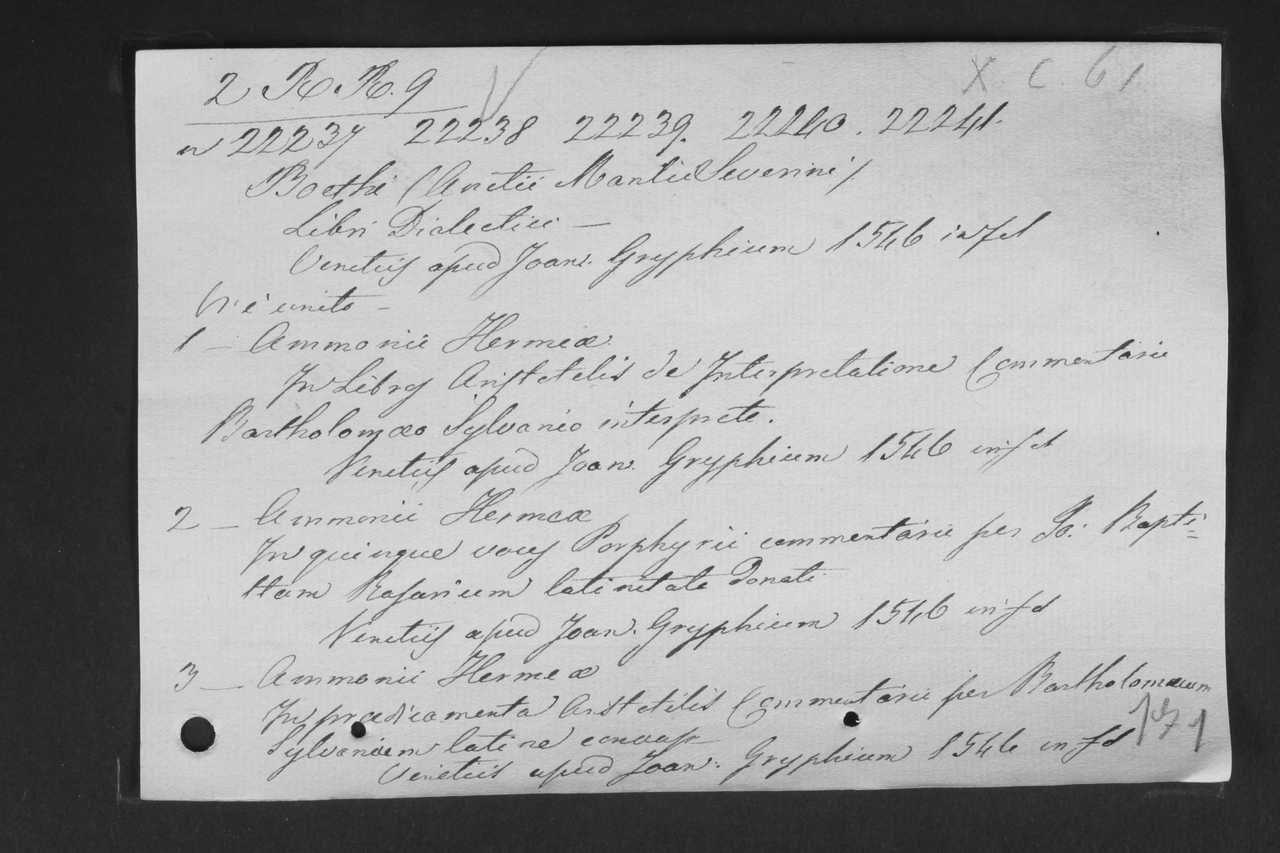 2 R. R. 9
X C. 61
n 22237 22238 22239. 22240. 22241.
Boethi (Anitii Manlii Severini)
Libri Dialectici —
Venetiis apud Joan. Gryphium 1546 in fol
Vi è unito —
1 — Ammonii Hermeæ
In Libros Aristotelis de Interpretatione Commentarii
Bartholomæo Sylvanio interprete.
Venetiis apud Joan. Gryphium 1546 in fol
2 — Ammonii Hermeæ
In quinque voces Porphyrii commentarii per Jo: Bapti=
stam Rasarium latinitate donati
Venetiis apud Joan. Gryphium 1546 in fol
3 — Ammonii Hermeæ
In prædicamenta Aristotelis Commentarii per Bartholomæum
Sylvanium latine
Venetiis apud Joan. Gryphium 1546 in fol